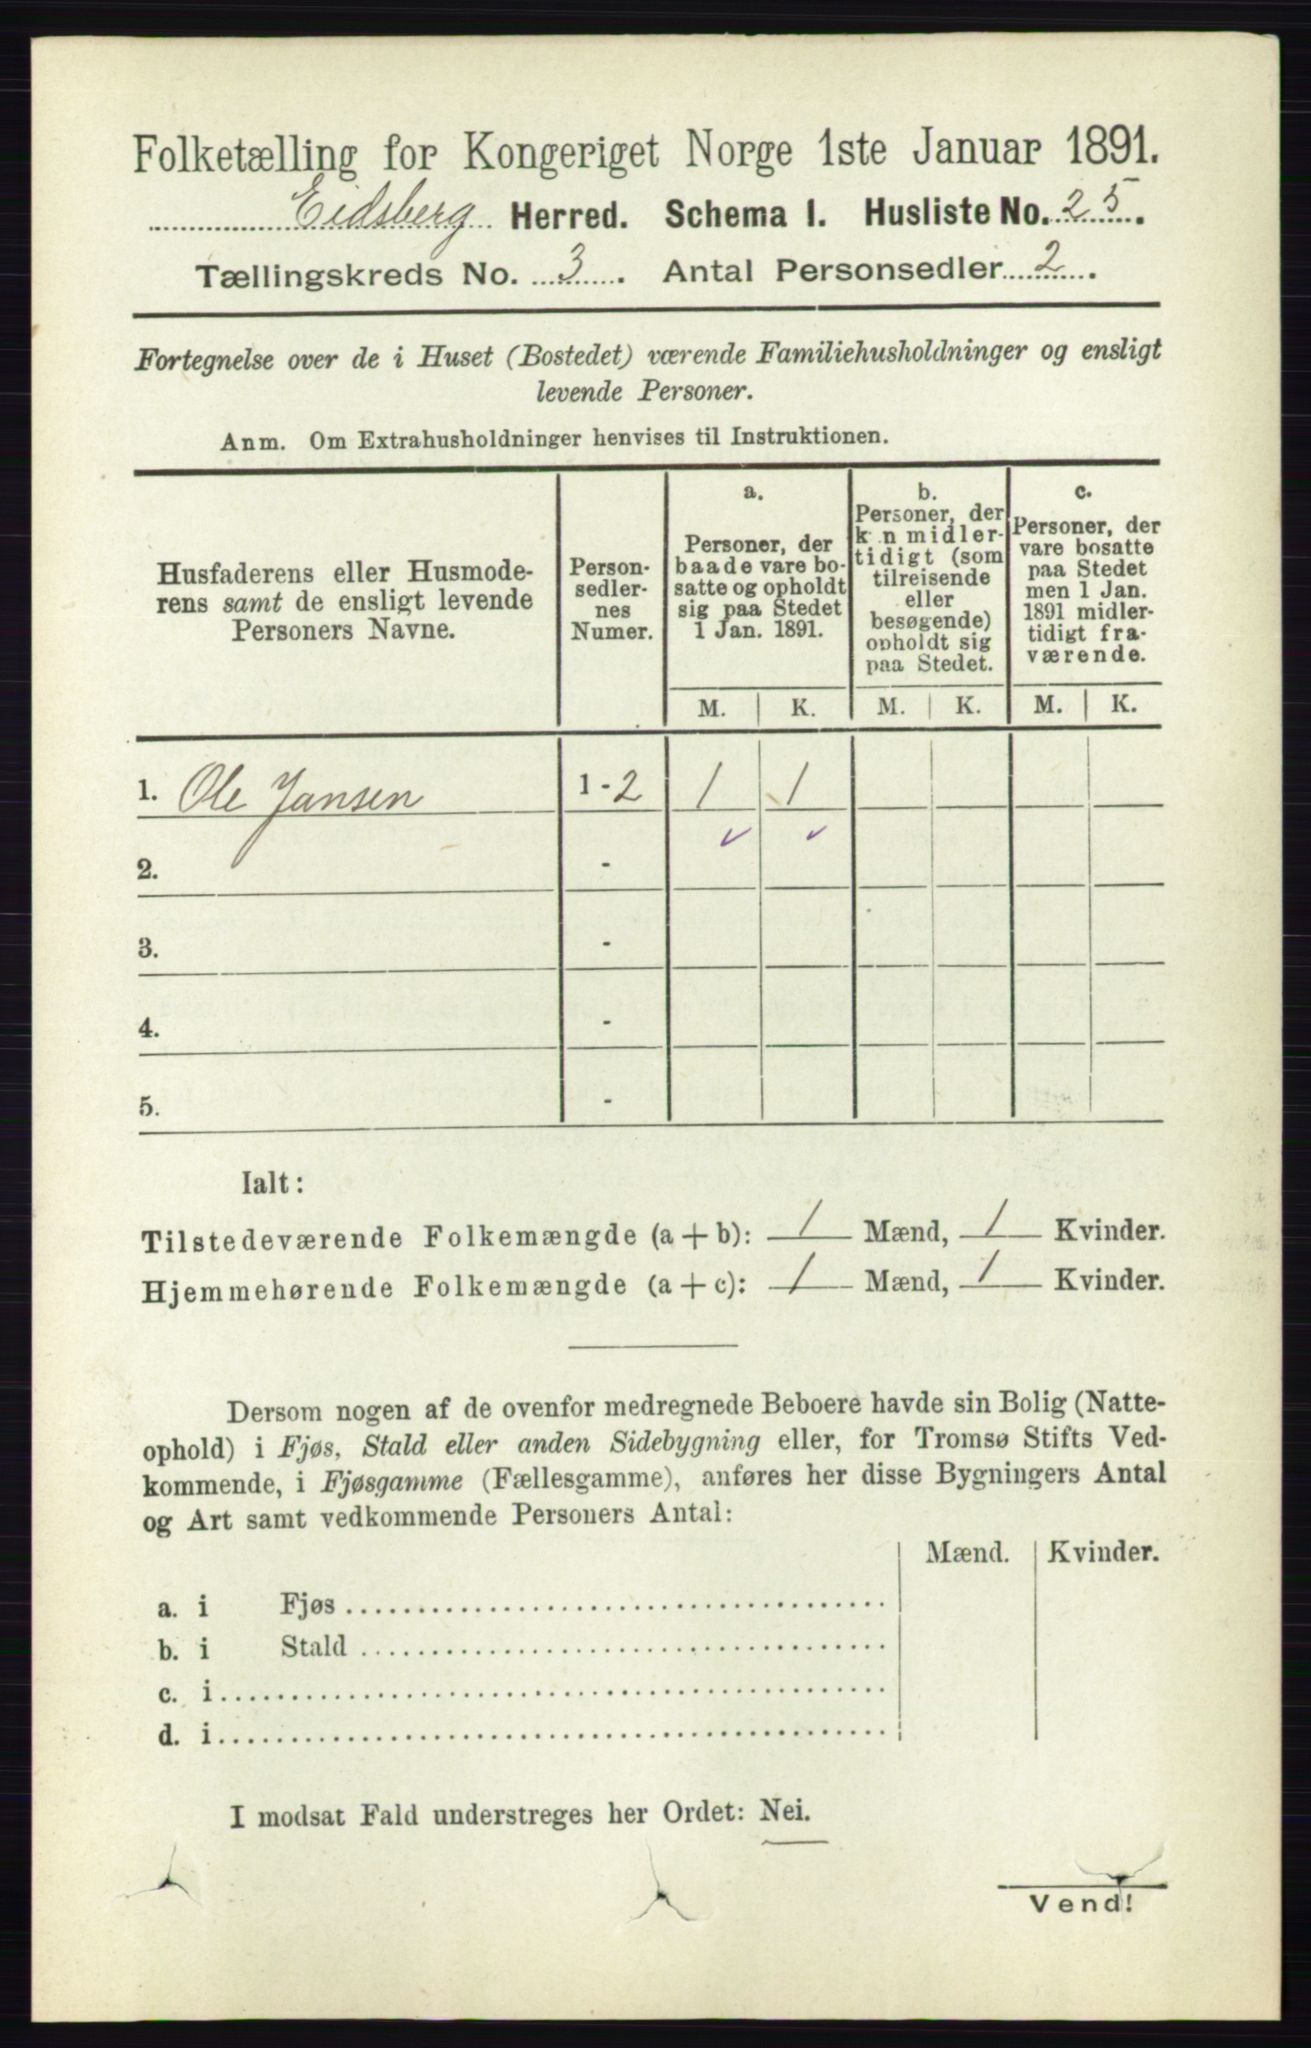 Folketælling for Kongeriget Norge 1ste Januar 1891.
Eidsberg Herred. Schema 1. Husliste No. 25.
Tællingskreds No. 3. Antal Personsedler 2.
Fortegnelse over de i Huset (Bostedet) værende Familiehusholdninger og ensligt
levende Personer.
Anm. Om Extrahusholdninger henvises til Instruktionen.
Husfaderens eller Husmode-
rens samt de ensligt levende
Personers Navne.
Person-
sedler-
nes
Numer.
a.
Personer, der
baade vare bo-
satte og opholdt
sig paa Stedet
1 Jan. 1891.
b.
Personer, der
k n midler-
tidigt (som
tilreisende
eller
besøgende)
opholdt sig
paa Stedet.
c.
Personer, der
vare bosatte
paa Stedet
men 1 Jan.
1891 midler-
tidigt fra-
værende.
M. K. M. K. M. K.
1. Ole Jansen 1-2 1 1
2. -
3. -
4. -
5. -
Ialt:
Tilstedeværende Folkemængde (a + b): 1 Mænd, 1 Kvinder.
Hjemmehørende Folkemængde (a + c): 1 Mænd, 1 Kvinder.
Dersom nogen af de ovenfor medregnede Beboere havde sin Bolig (Natte-
ophold) i Fjøs, Stald eller anden Sidebygning eller, for Tromsø Stifts Ved-
kommende, i Fjøsgamme (Fællesgamme), anføres her disse Bygningers Antal
og Art samt vedkommende Personers Antal:
Mænd. Kvinder.
a. i Fjøs
b. i Stald
c. i
d. i
I modsat Fald understreges her Ordet: Nei.
Vend!